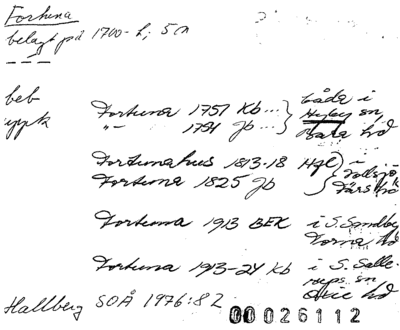 Fortuna
belagt på 1700-t; 5 n
beb Fortuna 1751 Kb... både i
uppk -"- 1794 Jb... Hyby sn, Bara hd
Fortunahus 1813-18 Hfl i
Fortuna 1825 Jb Färs hd
Fortuna 1913 BEK i S. Sandby
Torna hd
Fortuna 1913-24 Kb i S. Salle-
rups sn
Oxie hd
Hallberg SOÅ 1976:82
00026112